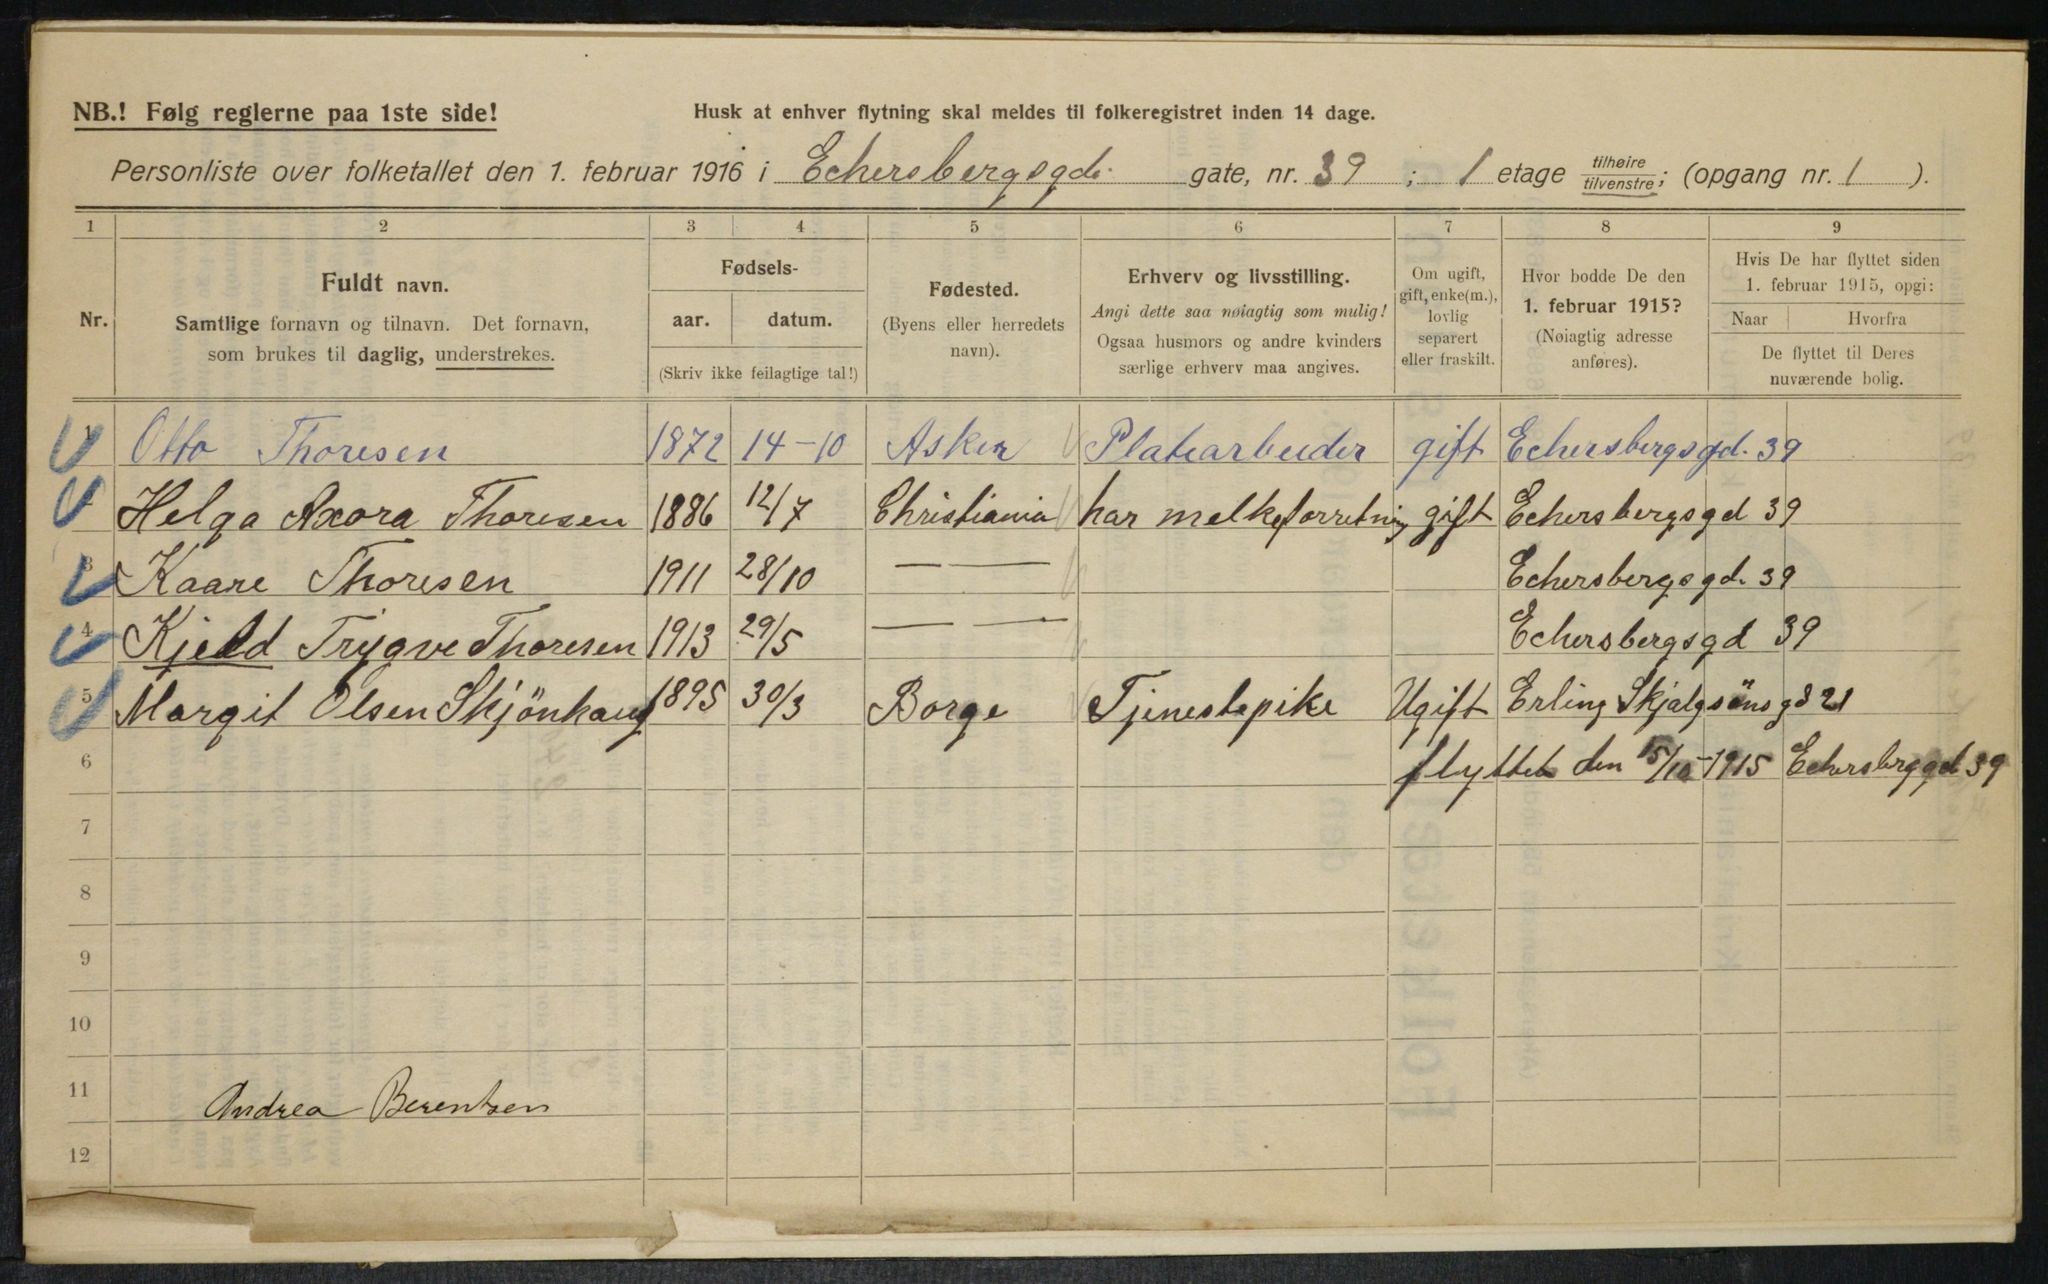 NB.! Følg reglerne paa 1ste side!
Husk at enhver flytning skal meldes til folkeregistret inden 14 dage.
Personliste over folketallet den 1. februar 1916 i Echersbergsgd. gate, nr. 39 ; 1 etage tilhøire tilvenstre; (opgang nr. 1 ).
1 2 3 4 5 6 7 8 9
Nr.
Fuldt navn.
Samtlige fornavn og tilnavn. Det fornavn,
som brukes til daglig, understrekes.
Fødsels-
aar. datum.
(Skriv ikke feilagtige tal!)
Fødested.
(Byens eller herredets
navn).
Erhverv og livsstilling.
Angi dette saa nøiagtig som mulig!
Ogsaa husmors og andre kvinders
særlige erhverv maa angives.
Om ugift,
gift, enke(m.),
lovlig
separert
eller fraskilt.
Hvor bodde De den
1. februar 1915?
(Nøiagtig adresse
anføres).
Hvis De har flyttet siden
1. februar 1915, opgi:
Naar Hvorfra
De flyttet til Deres
nuværende bolig.
1 Otto Thoresen 1872 14-10 Asker Platearbeider gift Echersbergsgd. 39
Helga Axora Thoresen 1886 12/7 Christiania har melkeforretning gift Echersbergsgd 39
3 Kaare Thoresen 1911 28/10 — — Echersbergsgd. 39
4 Kjeld Trygve Thoresen 1913 29/5 — — Echersbergsgd 39
5 Margit Olsen Skjönhaug 1895 30/3 Borge Tjenestepike Ugift Erling Skjalgsönsgd 21
6 flyttet den 15/10-1915 Echersberggd 39
7
8
9
10
11 Andrea Berentsen
12